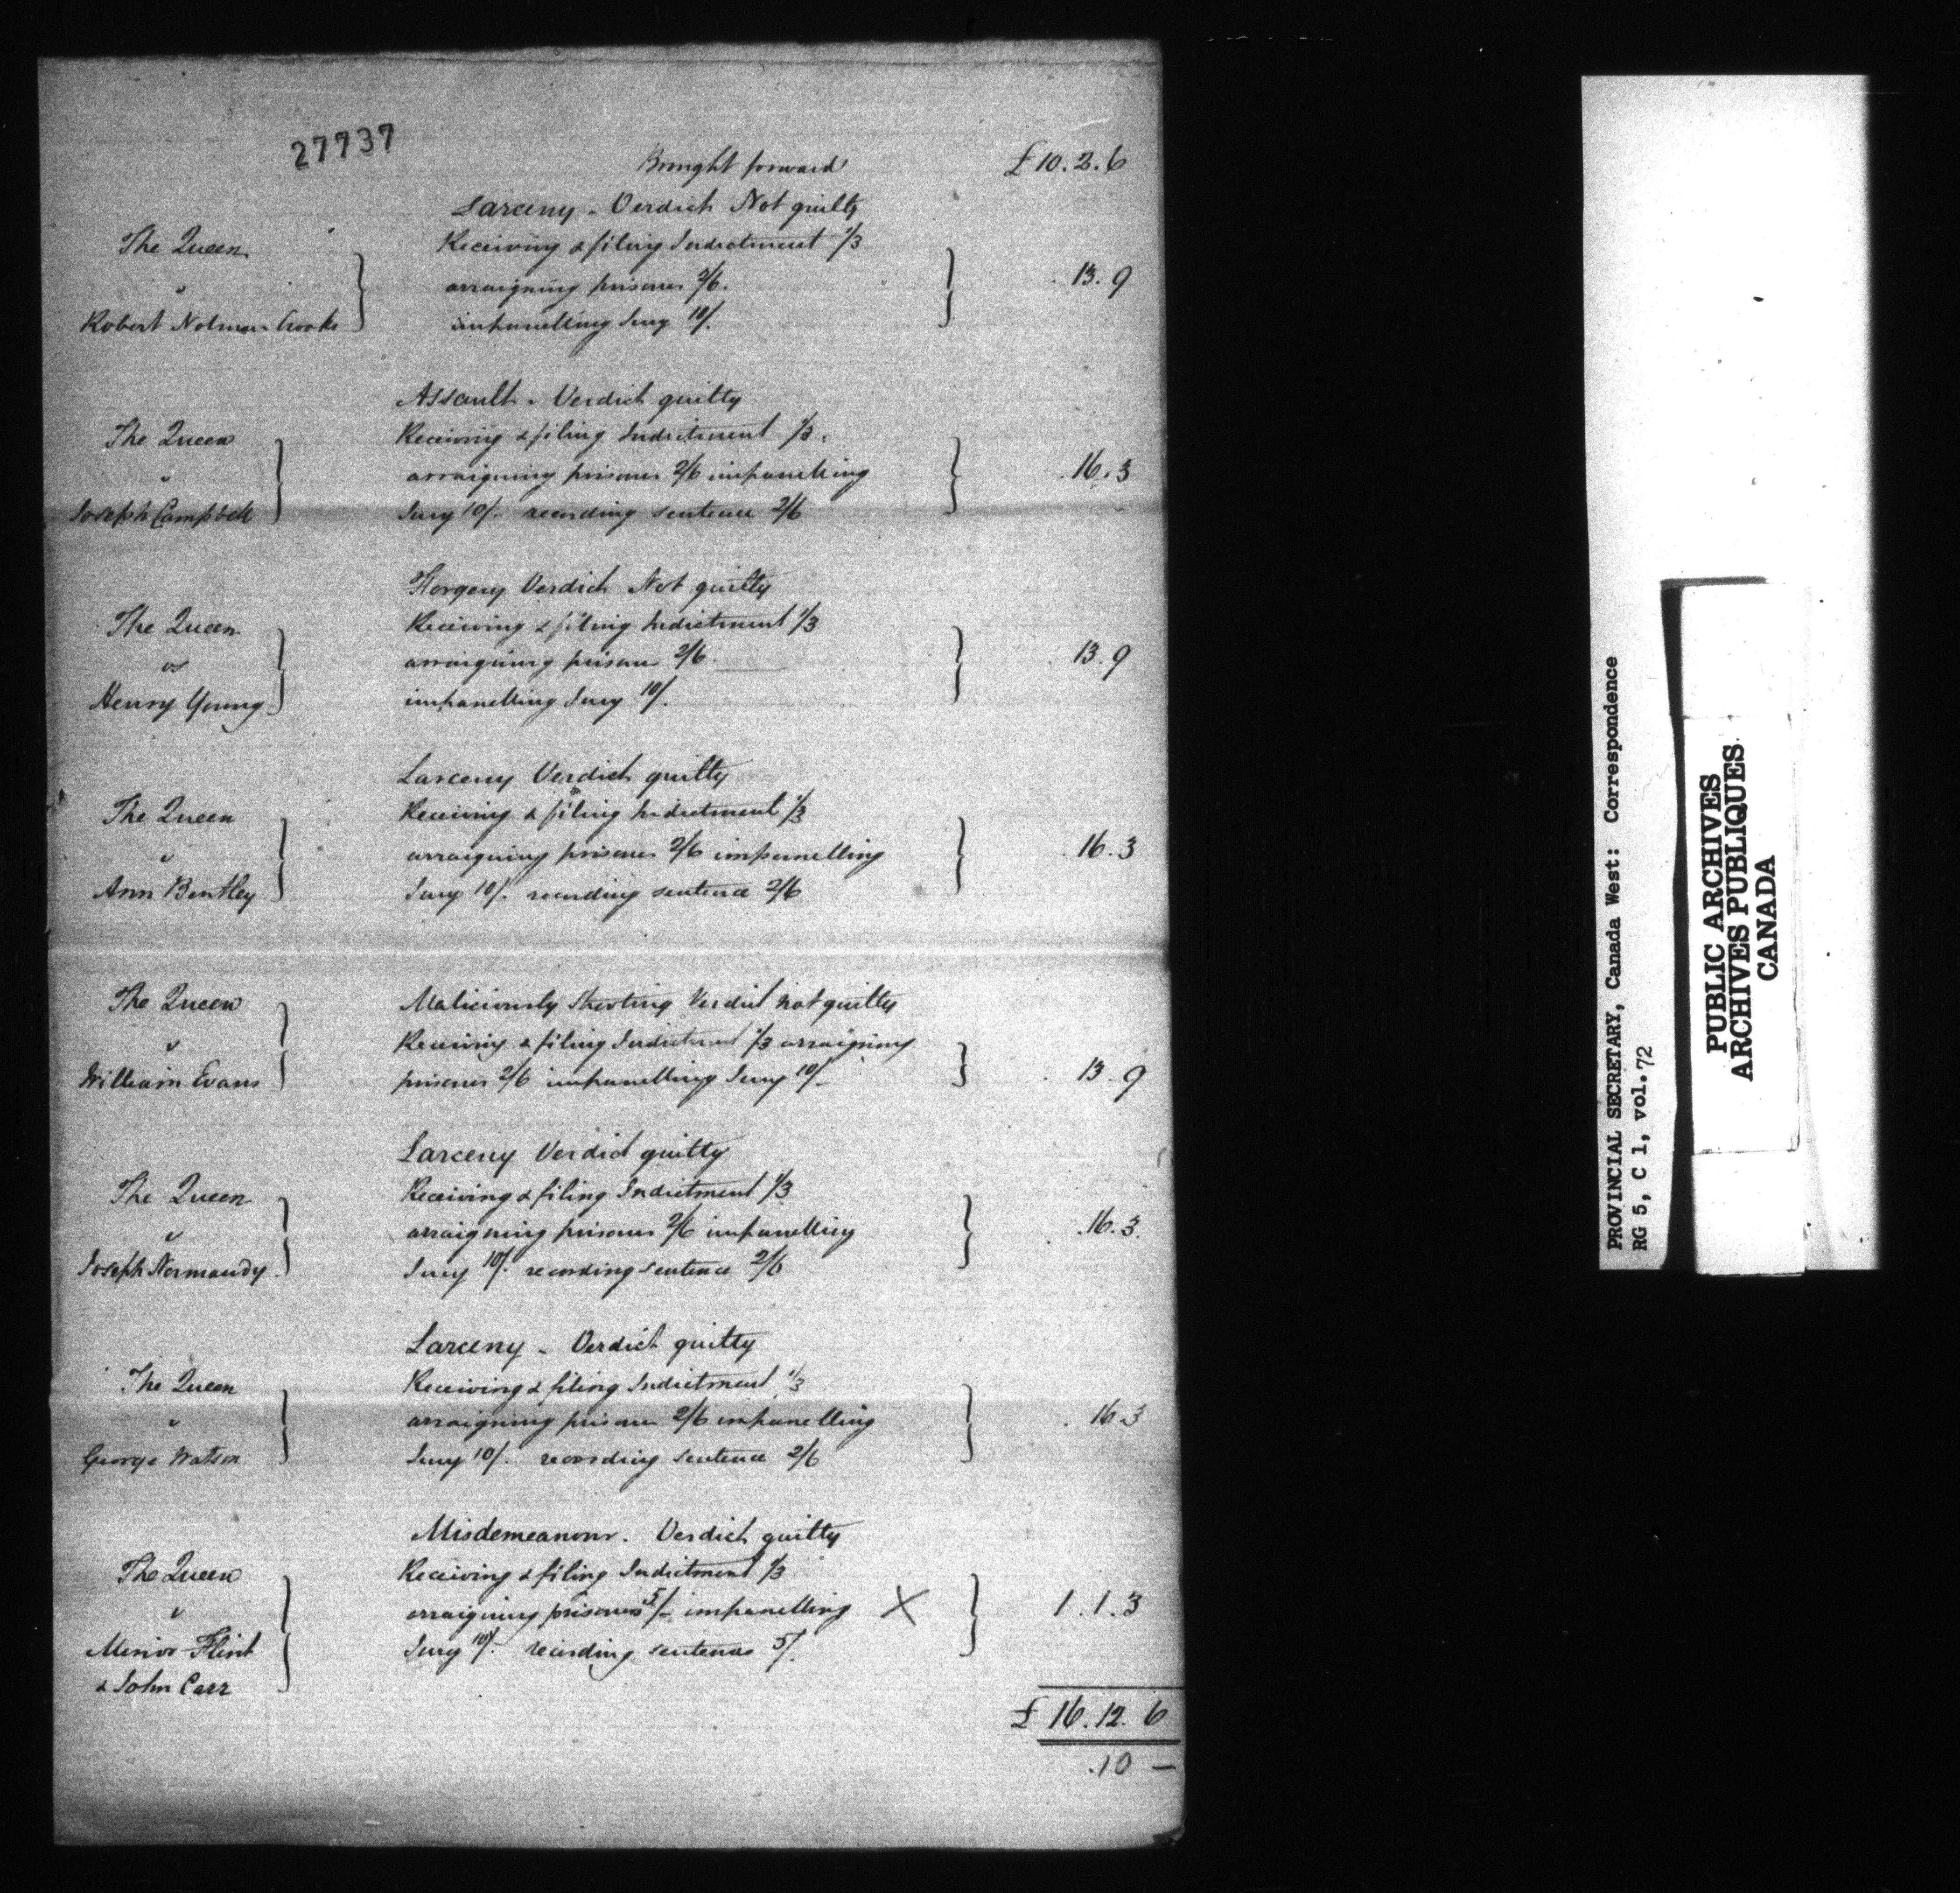 27737
Brought forward £10.2.6
Larceny - Verdict Not guilty
The Queen Receiving & filing Indictment 1/3
v arraigning prisoner 2/6. 13.9
Robert Notman Crooks impanelling Jury 10/.
Assault - Verdict guilty
The Queen Receiving & filing Indictment 1/3.
v arraigning prisoner 2/6 impanelling 16.3
Joseph Campbell Jury 10/. recording sentence 2/6
Forgery Verdict Not guilty
The Queen Receiving & filing Indictment 1/3
vs arraigning prisoner 2/6. 13.9
Henry Young impanelling Jury 10/.
Larceny Verdict guilty
The Queen Receiving & filing Indictment 1/3
v arraigning prisoner 2/6 impanelling 16.3
Ann Bentley Jury 10/. recording sentence 2/6
The Queen Maliciously Shooting Verdict not guilty
v Receiving & filing Indictment 1/3 arraigning
William Evans prisoner 2/6 impanelling Jury 10/. 13.9
Larceny Verdict guilty
The Queen Receiving & filing Indictment 1/3
v arraigning prisoner 2/6 impanelling 16.3
Joseph Normandy Jury 10/. recording sentence 2/6
Larceny - Verdict guilty
The Queen Receiving & filing Indictment 1/3
v arraigning prisoner 2/6 impanelling 16.3
George Watson Jury 10/. recording sentence 2/6
Misdemeanour. Verdict guilty
The Queen Receiving & filing Indictment 1/3
v arraigning prisoners 5/- impanelling X 1.1.3
Minor Flint Jury 10/. recording sentences 5/.
& John Carr
£16.12.6
.10 —
PROVINCIAL SECRETARY, Canada West: Correspondence
RG 5, C 1, vol. 72
PUBLIC ARCHIVES
ARCHIVES PUBLIQUES
CANADA